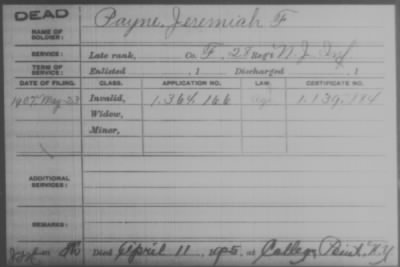 DEAD
NAME OF SOLDIER:
Payne, Jeremiah F
SERVICE:
Late rank, Co. F, 28 Reg't N.J. Inf
TERM OF SERVICE:
Enlisted , 1 Discharged , 1
DATE OF FILING. CLASS. APPLICATION NO. LAW. CERTIFICATE NO.
1907 May 23 Invalid, 1.364.166 1.139.114
Widow,
Minor,
ADDITIONAL SERVICES:
REMARKS:
Died April 11, at College Point, N.Y.